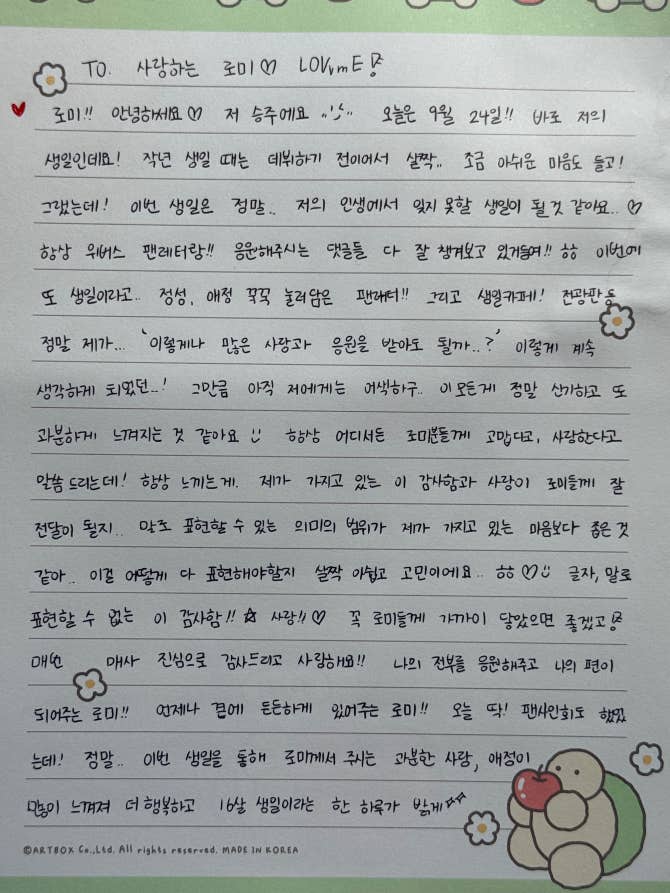 TO. 사랑하는 로미♡ LOVvmE
로미!! 안녕하세요♡ 저 승주에요 오늘은 9월 24일!! 바로 저의
생일인데요! 작년 생일 때는 데뷔하기 전이어서 살짝.. 조금 아쉬운 마음도 들고!
그랬는데! 이번 생일은 정말.. 저의 인생에서 잊지 못할 생일이 될 것 같아요..♡
항상 위버스 팬레터랑!! 응원해주시는 댓글들 다 잘 챙겨보고 있거들여!! ㅎㅎ 이번에
또 생일이라고.. 정성, 애정 꾹꾹 눌러담은 팬레터!! 그리고 생일카페! 전광판 등
정말 제가... '이렇게나 많은 사랑과 응원을 받아도 될까..?' 이렇게 계속
생각하게 되었던..! 그만큼 아직 저에게는 어색하구.. 이 모든게 정말 신기하고 또
과분하게 느껴지는 것 같아요 항상 어디서든 로미분들께 고맙다고, 사랑한다고
말씀 드리는데! 항상 느끼는게. 제가 가지고 있는 이 감사함과 사랑이 로미들께 잘
전달이 될지.. 말로 표현할 수 있는 의미의 범위가 제가 가지고 있는 마음보다 좁은 것
같아.. 이걸 어떻게 다 표현해야할지 살짝 아쉽고 고민이에요.. ㅎㅎ♡ 글자, 말로
표현할 수 없는 이 감사함!! ☆ 사랑!!♡ 꼭 로미들께 가까이 닿았으면 좋겠고
매번 매사 진심으로 감사드리고 사랑해요!! 나의 전부를 응원해주고 나의 편이
되어주는 로미!! 언제나 곁에 든든하게 있어주는 로미!! 오늘 딱! 팬사인회도 했었
는데! 정말.. 이번 생일을 통해 로미께서 주시는 과분한 사랑, 애정이
많이 느껴져 더 행복하고 16살 생일이라는 한 하루가 밝게☆☆
©ARTBOX Co.,Ltd. All rights reserved. MADE IN KOREA